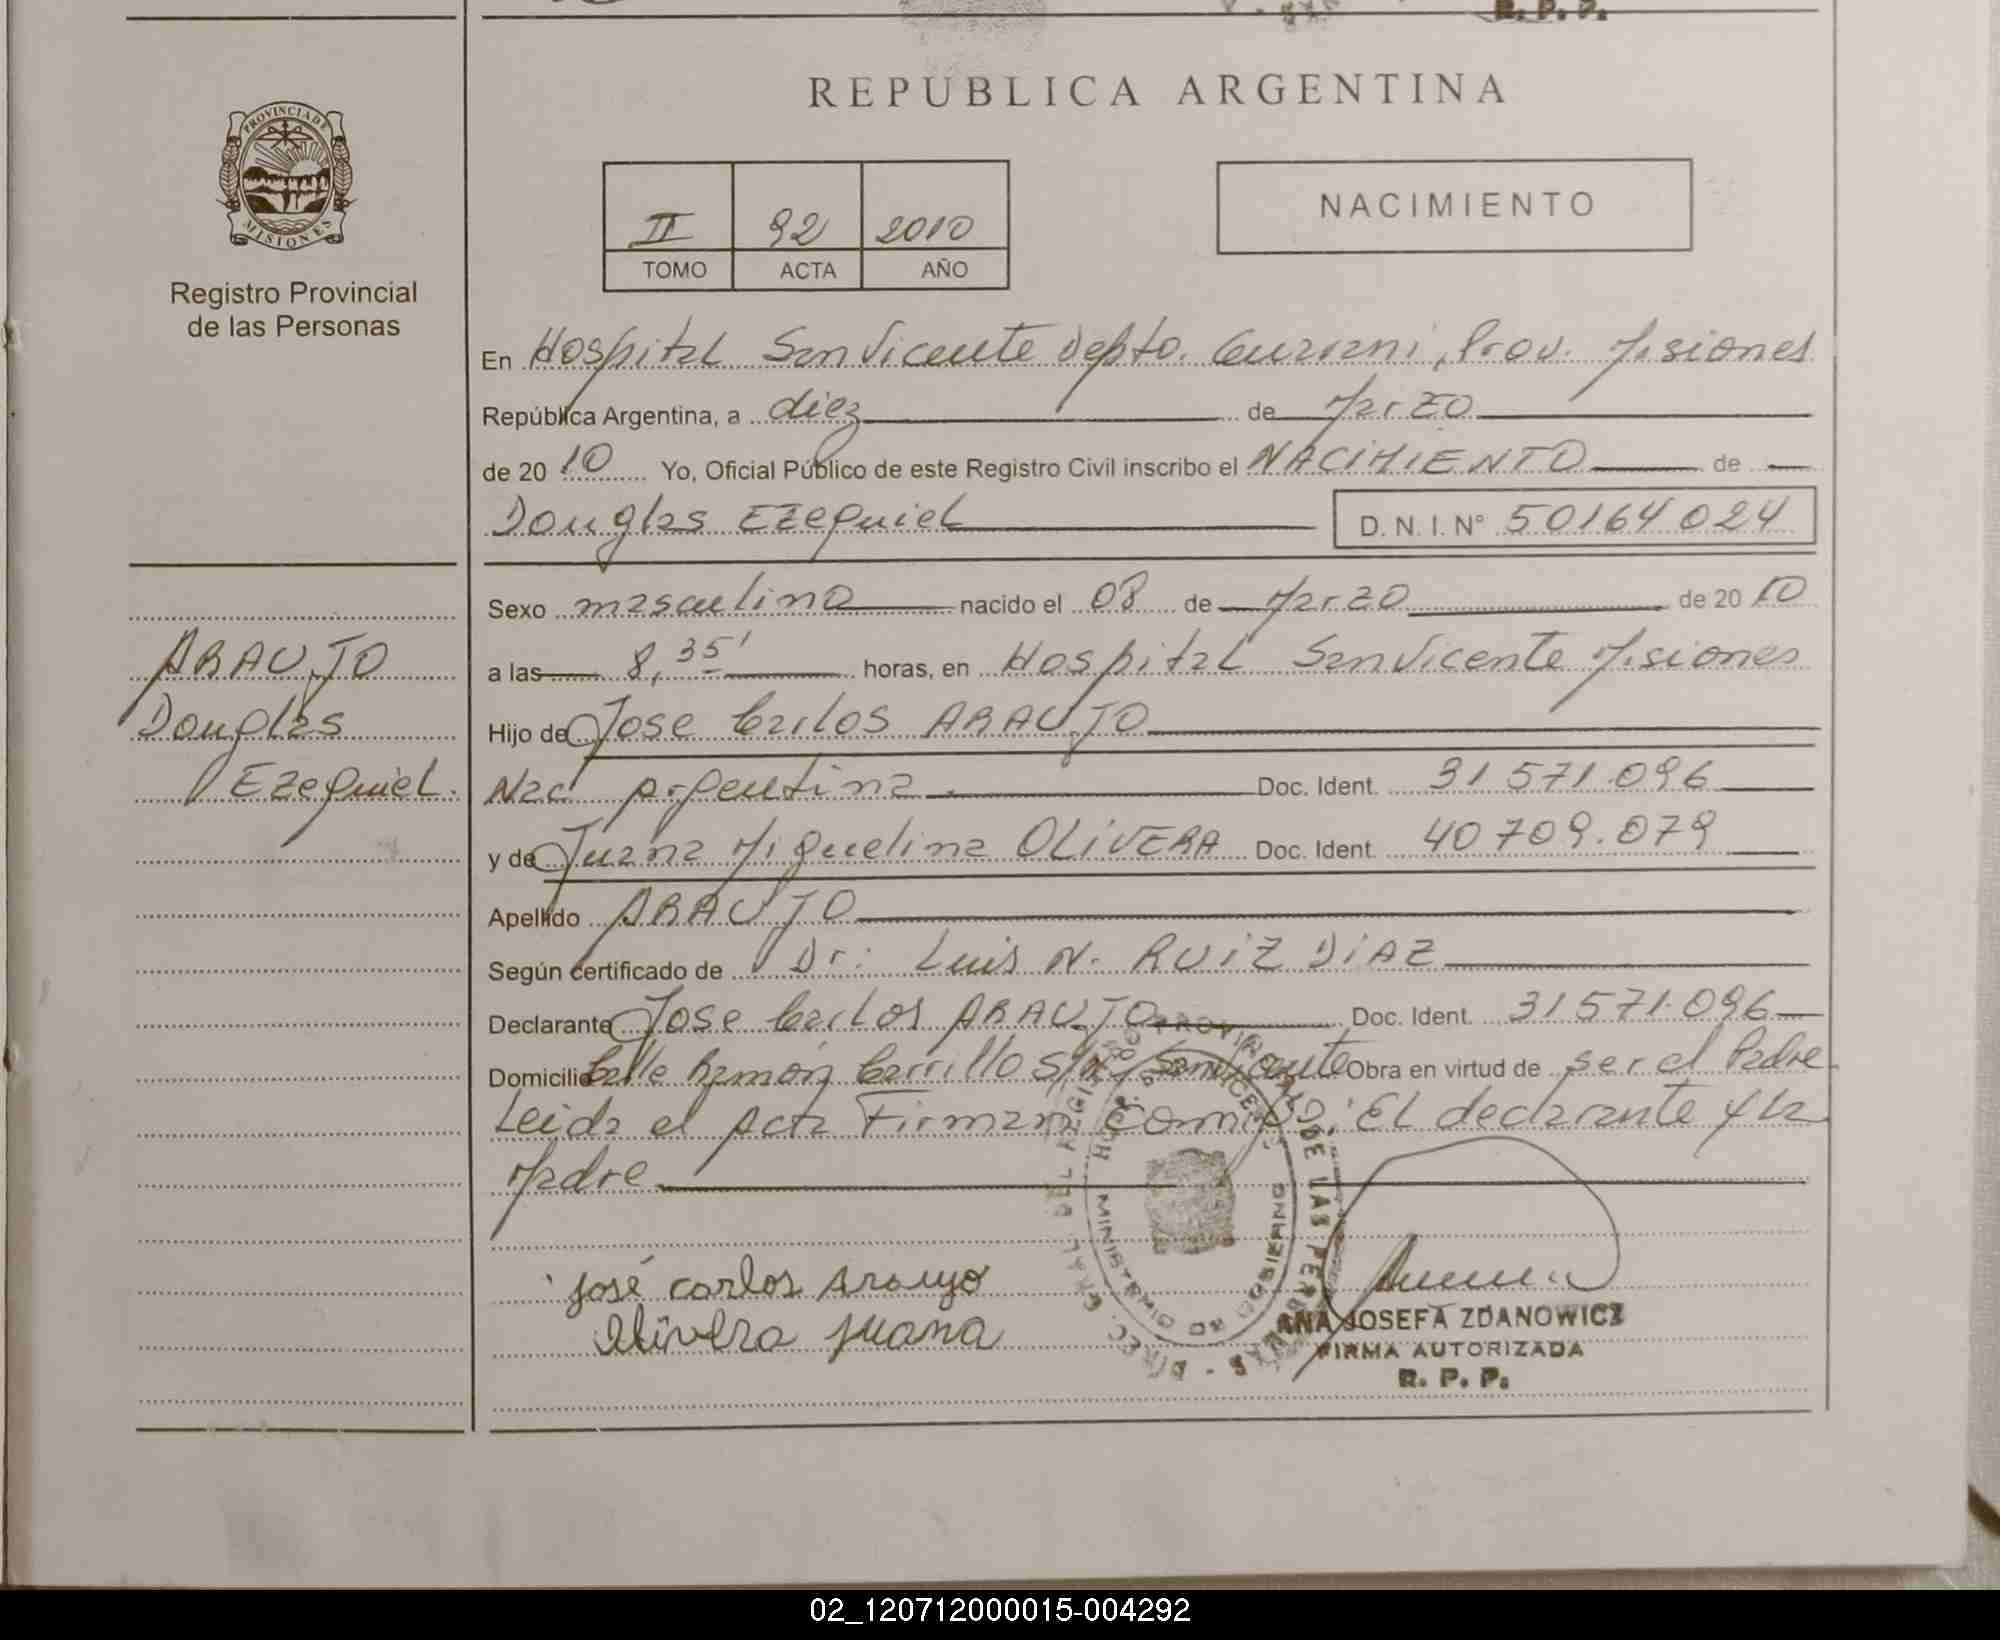 R. P. P.
REPUBLICA ARGENTINA
PROVINCIA DE
MISIONES
Registro Provincial
de las Personas
II 92 2010
TOMO ACTA AÑO
NACIMIENTO
En Hospital San Vicente Depto. Guarani, Prov. Misiones
República Argentina, a diez de Marzo
de 2010 Yo, Oficial Público de este Registro Civil inscribo el NACIMIENTO de
Douglas Ezequiel D. N. I. N° 50164024
Sexo masculino nacido el 08 de Marzo de 2010
a las 8,35' horas, en Hospital San Vicente Misiones
Hijo de Jose Carlos ARAUJO
Nac Argentina Doc. Ident. 31571.096
y de Juana Miquelina OLIVERA Doc. Ident. 40709.079
Apellido ARAUJO
Según certificado de Dr: Luis N. RUIZ DIAZ
Declarante Jose Carlos ARAUJO Doc. Ident. 31571.096
Domicilio Calle Ramón Carrillo S/N San Vicente Obra en virtud de ser el Padre
Leida el Acta Firman Conmigo: El declarante y la
Madre
ARAUJO
Douglas
Ezequiel.
José Carlos Araujo
Olivera Juana
DIREC. GRAL. DEL REGISTRO PROVINCIAL DE LAS PERSONAS
MINISTERIO DE GOBIERNO
ANA JOSEFA ZDANOWICZ
FIRMA AUTORIZADA
R. P. P.
02_120712000015-004292